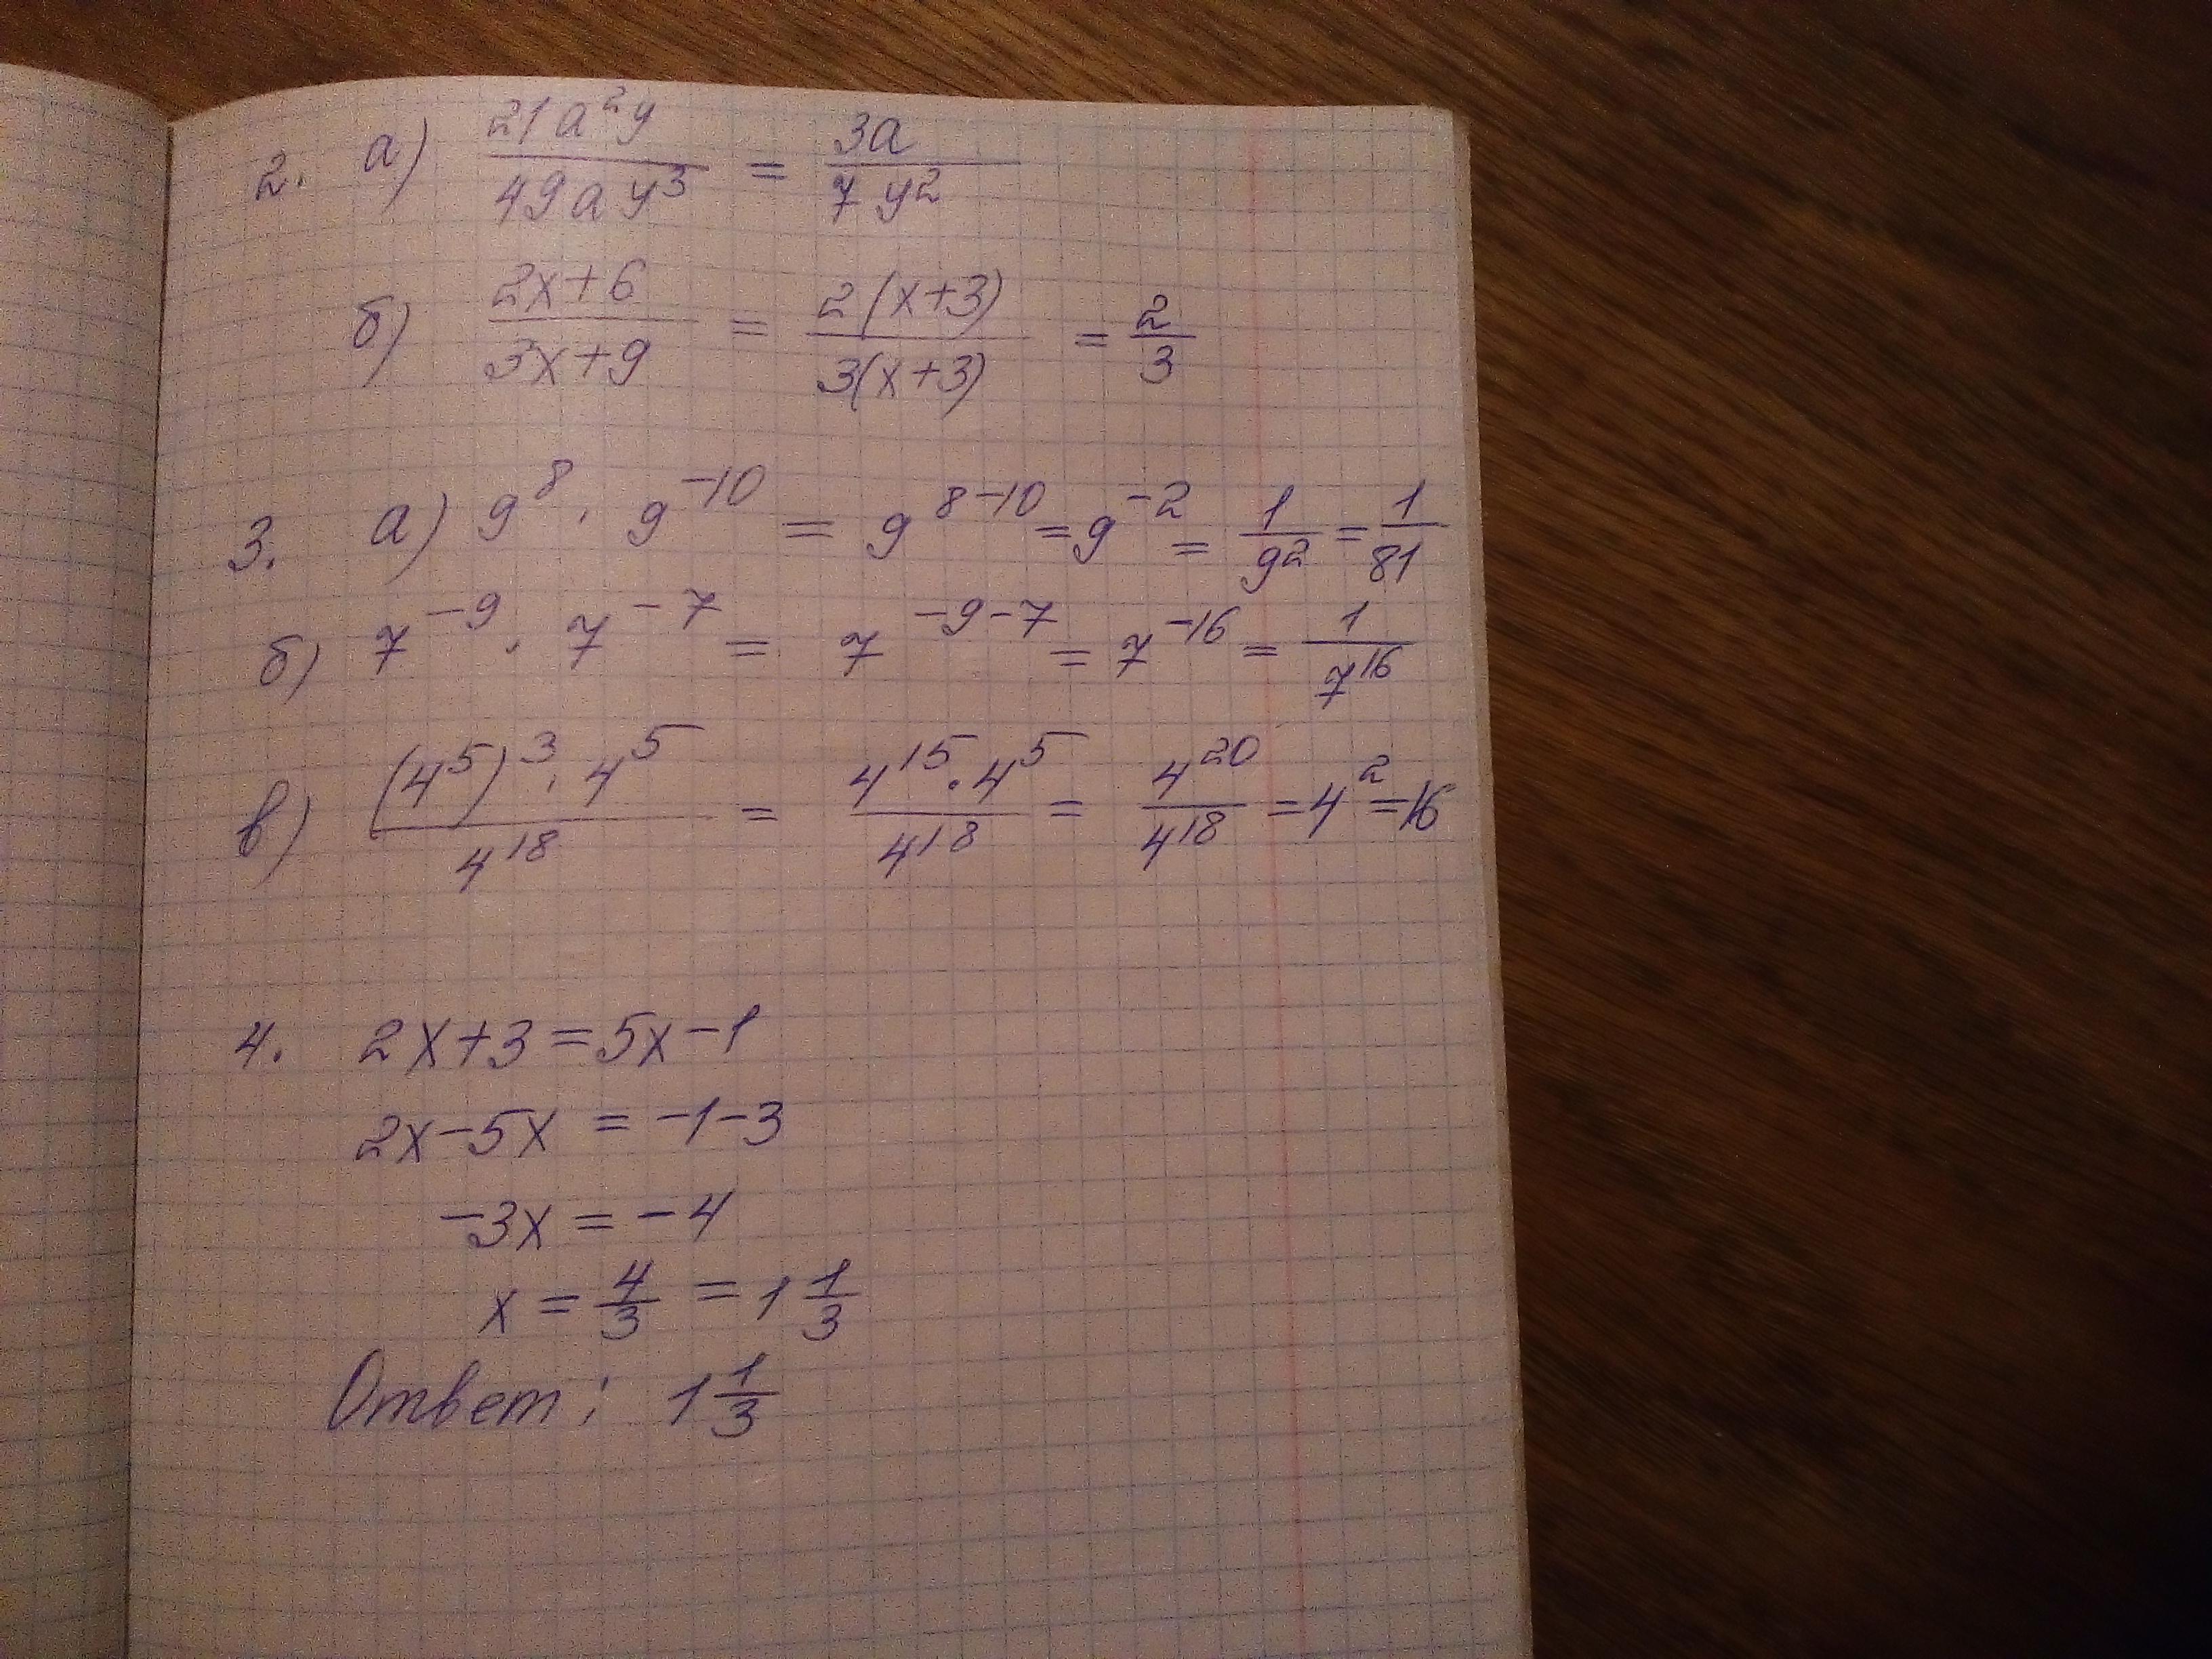 2. а) 21a²y / 49ay³ = 3a / 7y²
б) 2x+6 / 3x+9 = 2(x+3) / 3(x+3) = 2/3
3. а) 9⁸ · 9⁻¹⁰ = 9⁸⁻¹⁰ = 9⁻² = 1/9² = 1/81
б) 7⁻⁹ · 7⁻⁷ = 7⁻⁹⁻⁷ = 7⁻¹⁶ = 1/7¹⁶
в) (4⁵)³ · 4⁵ / 4¹⁸ = 4¹⁵ · 4⁵ / 4¹⁸ = 4²⁰ / 4¹⁸ = 4² = 16
4. 2x+3=5x-1
2x-5x = -1-3
-3x = -4
x = 4/3 = 1 1/3
Ответ: 1 1/3